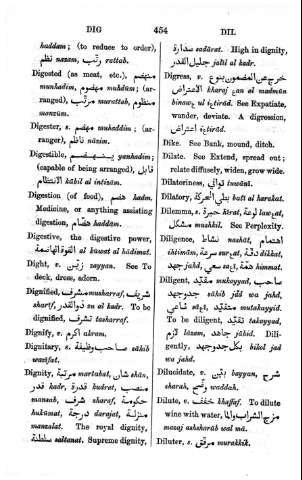 DIG 454 DIL
haddam; (to reduce to order),
نظم nazam, رتّب rattab.
Digested (as meat, etc.), منهضم
munhadim, مهضوم muhdūm; (ar-
ranged), مرتّب murattab, منظوم
manzūm.
Digester, s. مهضم muhaddim; (ar-
ranger), ناظم nāzim.
Digestible, ينهضم yanhadim;
(capable of being arranged), قابل
الانتظام kābil al intizām.
Digestion (of food), هضم hadm.
Medicine, or anything assisting
digestion, هضّام haddām.
Digestive, the digestive power,
القوة الهاضمة al kūwat al hādimat.
Dight, v. زيّن zayyan. See To
deck, dress, adorn.
Dignified, مشرّف musharraf, شريف
sharīf, ذو القدر zu al kadr. To be
dignified, تشرّف tasharraf.
Dignify, v. اكرم akram.
Dignitary, s. صاحب وظيفة sāhib
wazīfat.
Dignity, مرتبة martabat, شان shān,
قدر kadr, قدرة kudrat, منصب
mansab, شرف sharaf, حكومة
hukūmat, درجة darajat, منزلة
manzalat. The royal dignity,
سلطنة saltanat. Supreme dignity,
صدارة sadārat. High in dignity,
جليل القدر jalīl al kadr.
Digress, v. خرج عن المضمون بنوع
الاعتراض kharaj ʿan al madmūn
binawʿ ul iʿtirād. See Expatiate,
wander, deviate. A digression,
اعتراض iʿtirād.
Dike. See Bank, mound, ditch.
Dilate. See Extend, spread out;
relate diffusely, widen, grow wide.
Dilatoriness, توانى tawānī.
Dilatory, بطي الحركة batī al harakat.
Dilemma, s. حيرة hirat, لوعة lawʿat,
مشكل mushkil. See Perplexity.
Diligence, نشاط nashāt, اهتمام
ihtimām, سرعة surʿat, دقة dikkat,
جهد jahd, سعى saʿī, همّة himmat.
Diligent, مقيّد mukayyad, صاحب
جد وجهد sāhib jidd wa jahd,
ساعى sāʿī, متقيّد mutakayyid.
To be diligent, تقيّد takayyad,
لازم lāzam, جاهد jāhid. Dili-
gently, بكل جد وجهد bikol jad
wa jahd.
Dilucidate, v. بيّن bayyan, شرح
sharah, وضّح waddah.
Dilute, v. خفّف khaffaf. To dilute
wine with water, مزج الشراب والما
mazaj asksharāb wal mā.
Diluter, s. مرقق murakkik.